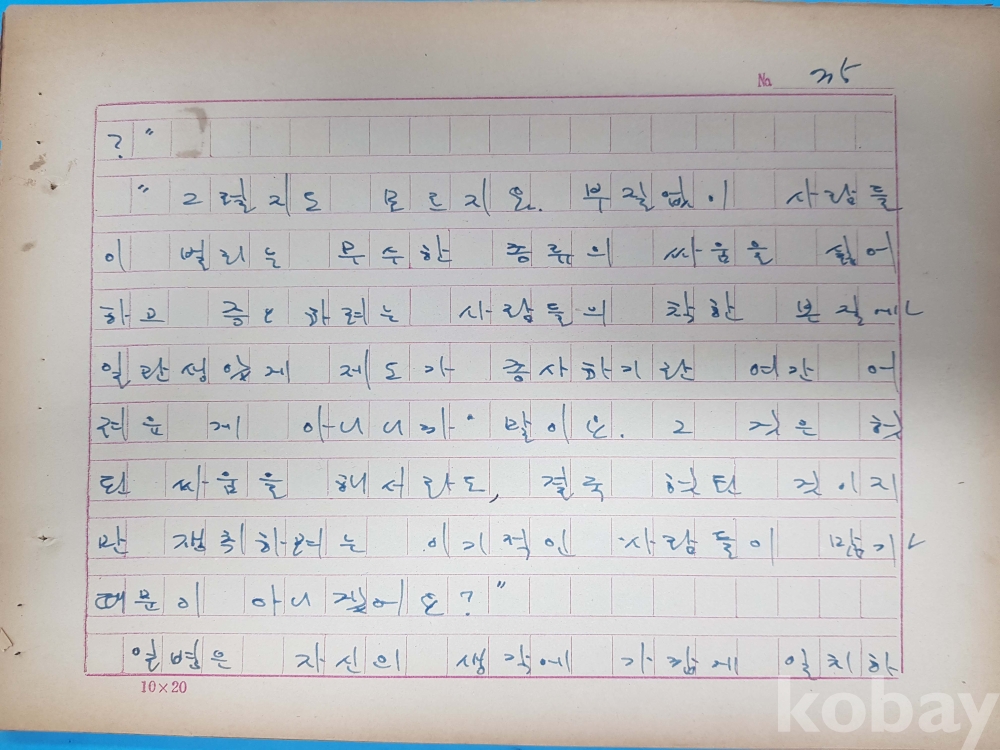 No 25
?"
"그럴지도 모르지요. 부질없이 사람들
이 벌리는 무수한 종류의 싸움을 싫어
하고 증오하려는 사람들의 착한 본질에
일관성있게 제도가 종사하기란 여간 어
려운 게 아니니까 말이오. 그 것은 헛
된 싸움을 해서라도, 결국 헛된 것이지
만 쟁취하려는 이기적인 사람들이 많기
때문이 아니겠어요?"
일병은 자신의 생각에 가깝게 일치하
10×20
kobay